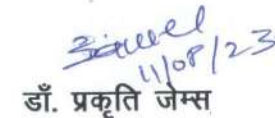 11/08/23
डॉ. प्रकृति जेम्स